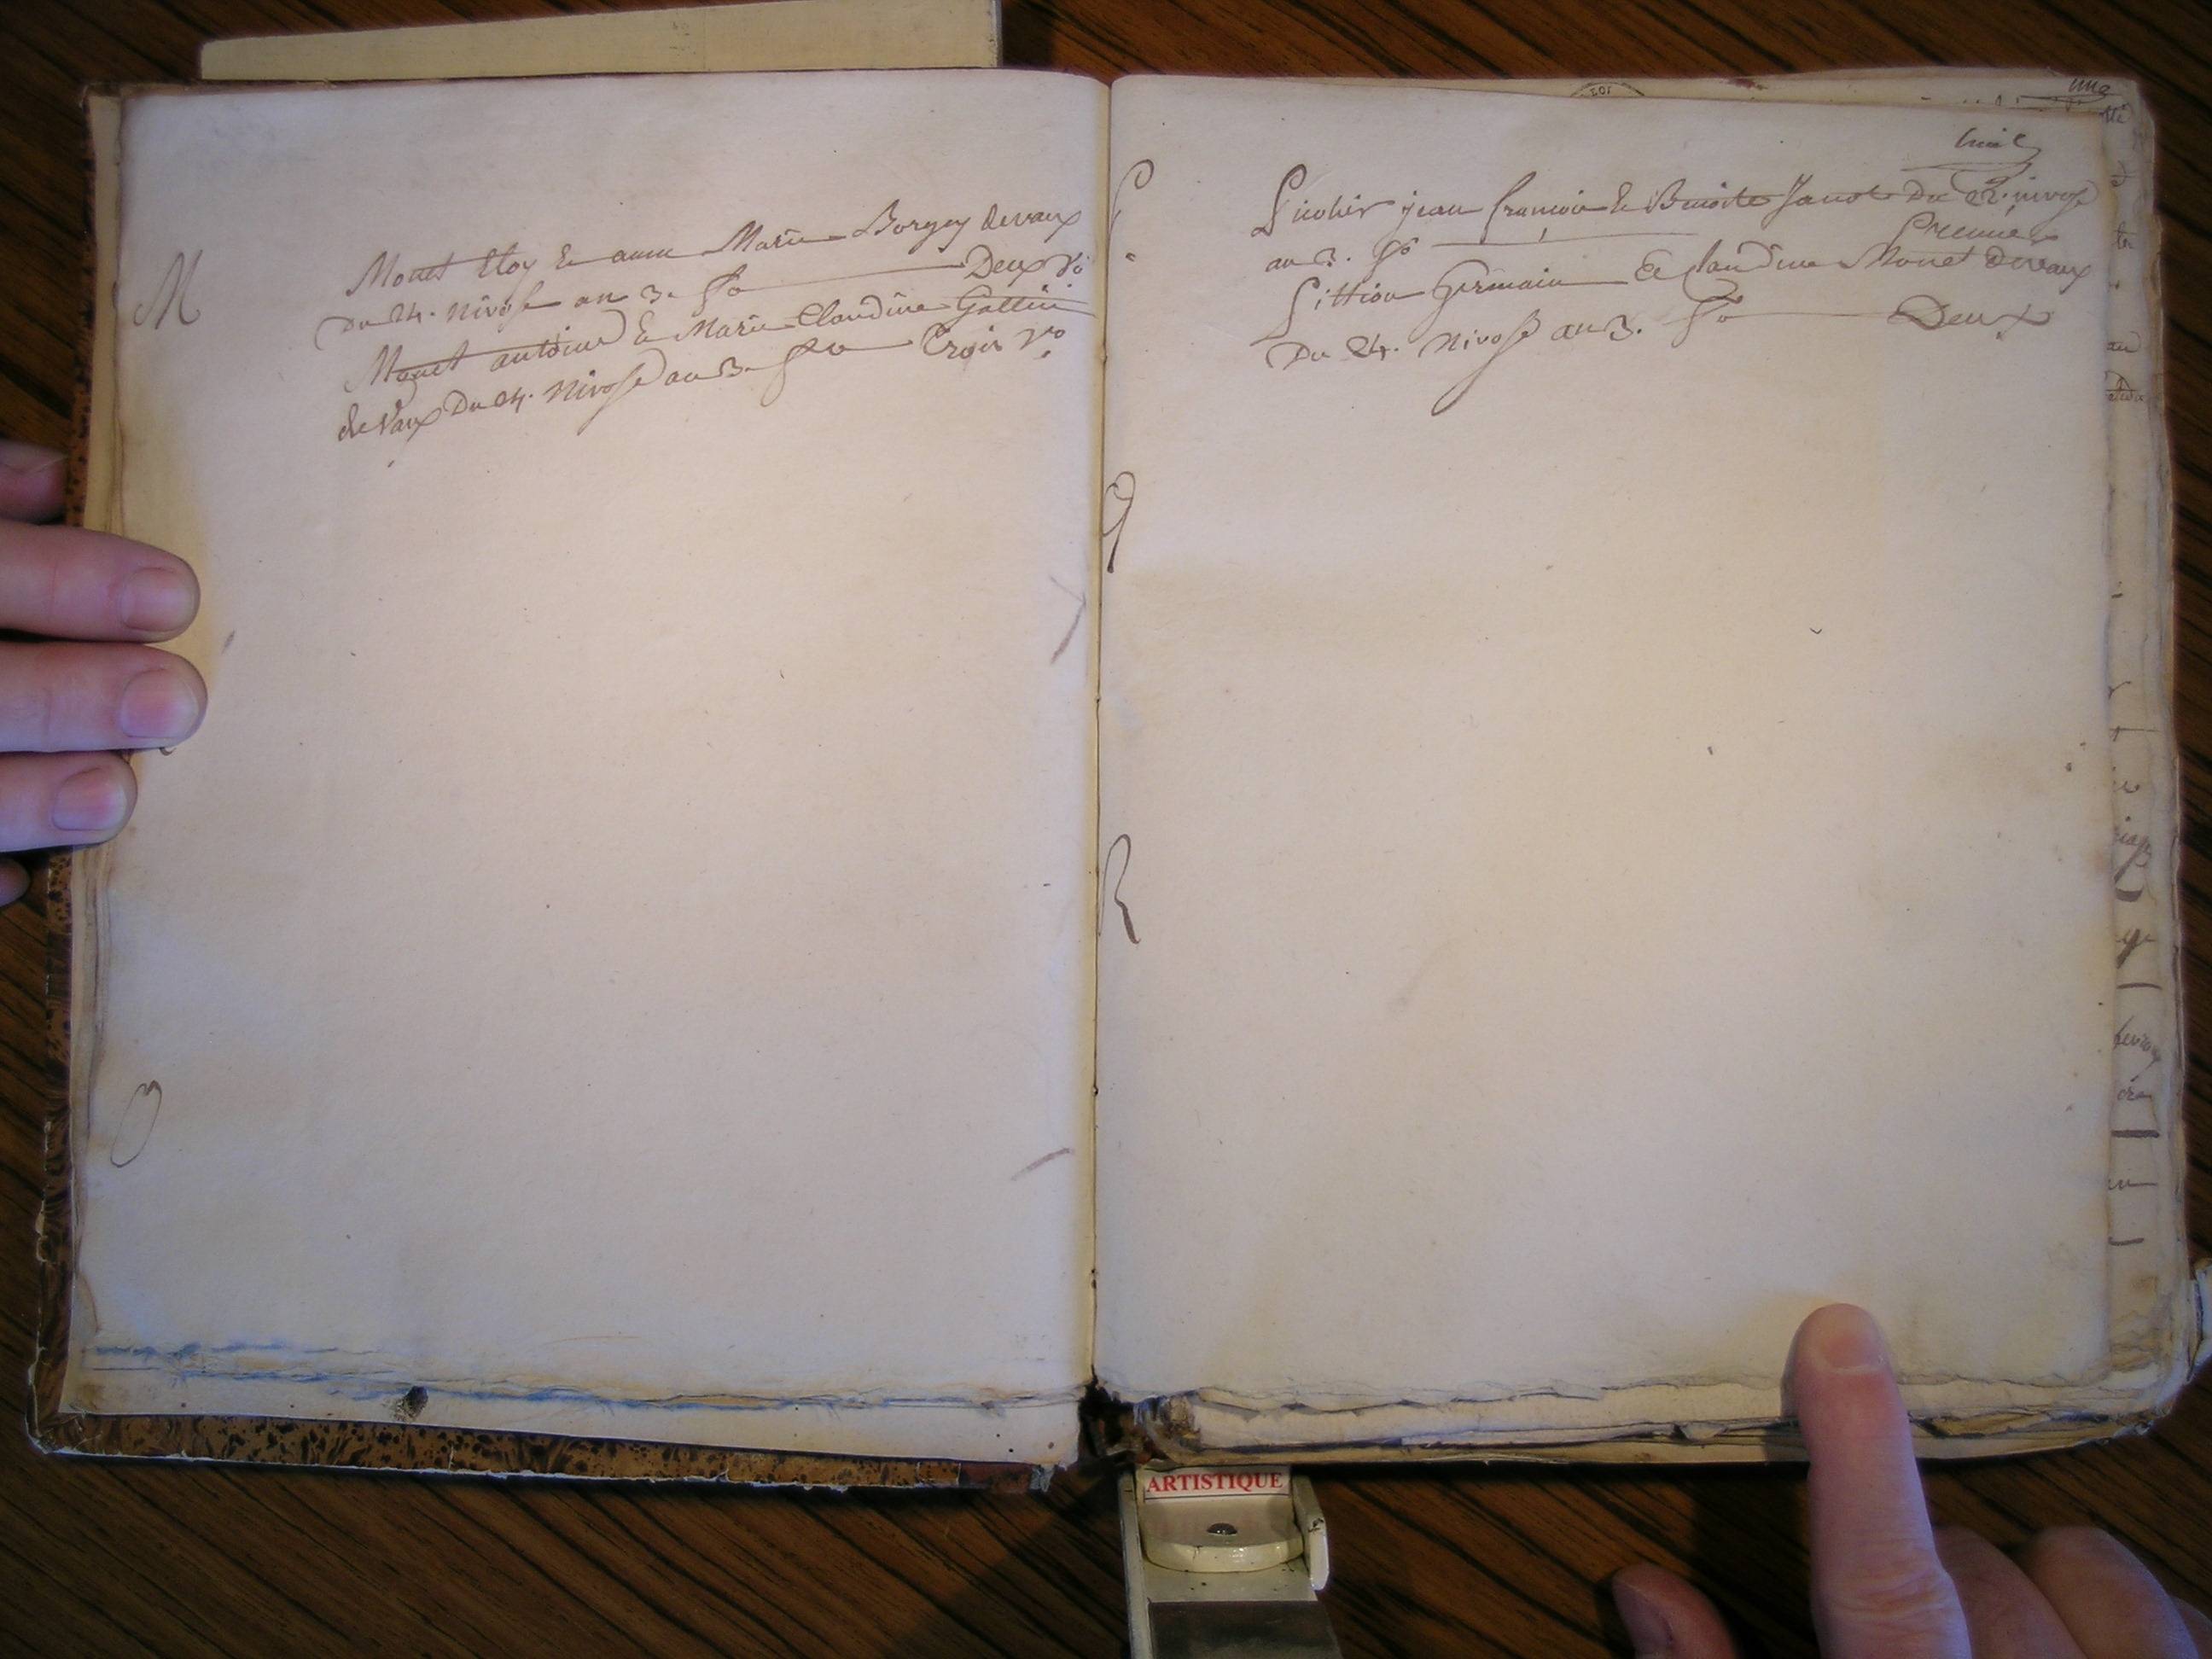 M
Monet Eloy & anne Marie Borgey devaux
Du 24. Nivose an 3. fo Deux vo
Monet antoine & Marie Claudine Gallin
de Vaux Du 24. Nivose an 3. fo Trois vo
O
P
jean françois & Benoite Janot Du 22. nivose
an 3. fo Premier
Pittion Germain & Claudine Monet Devaux
Du 24. Nivose an 3. fo Deux
Q
R
ARTISTIQUE